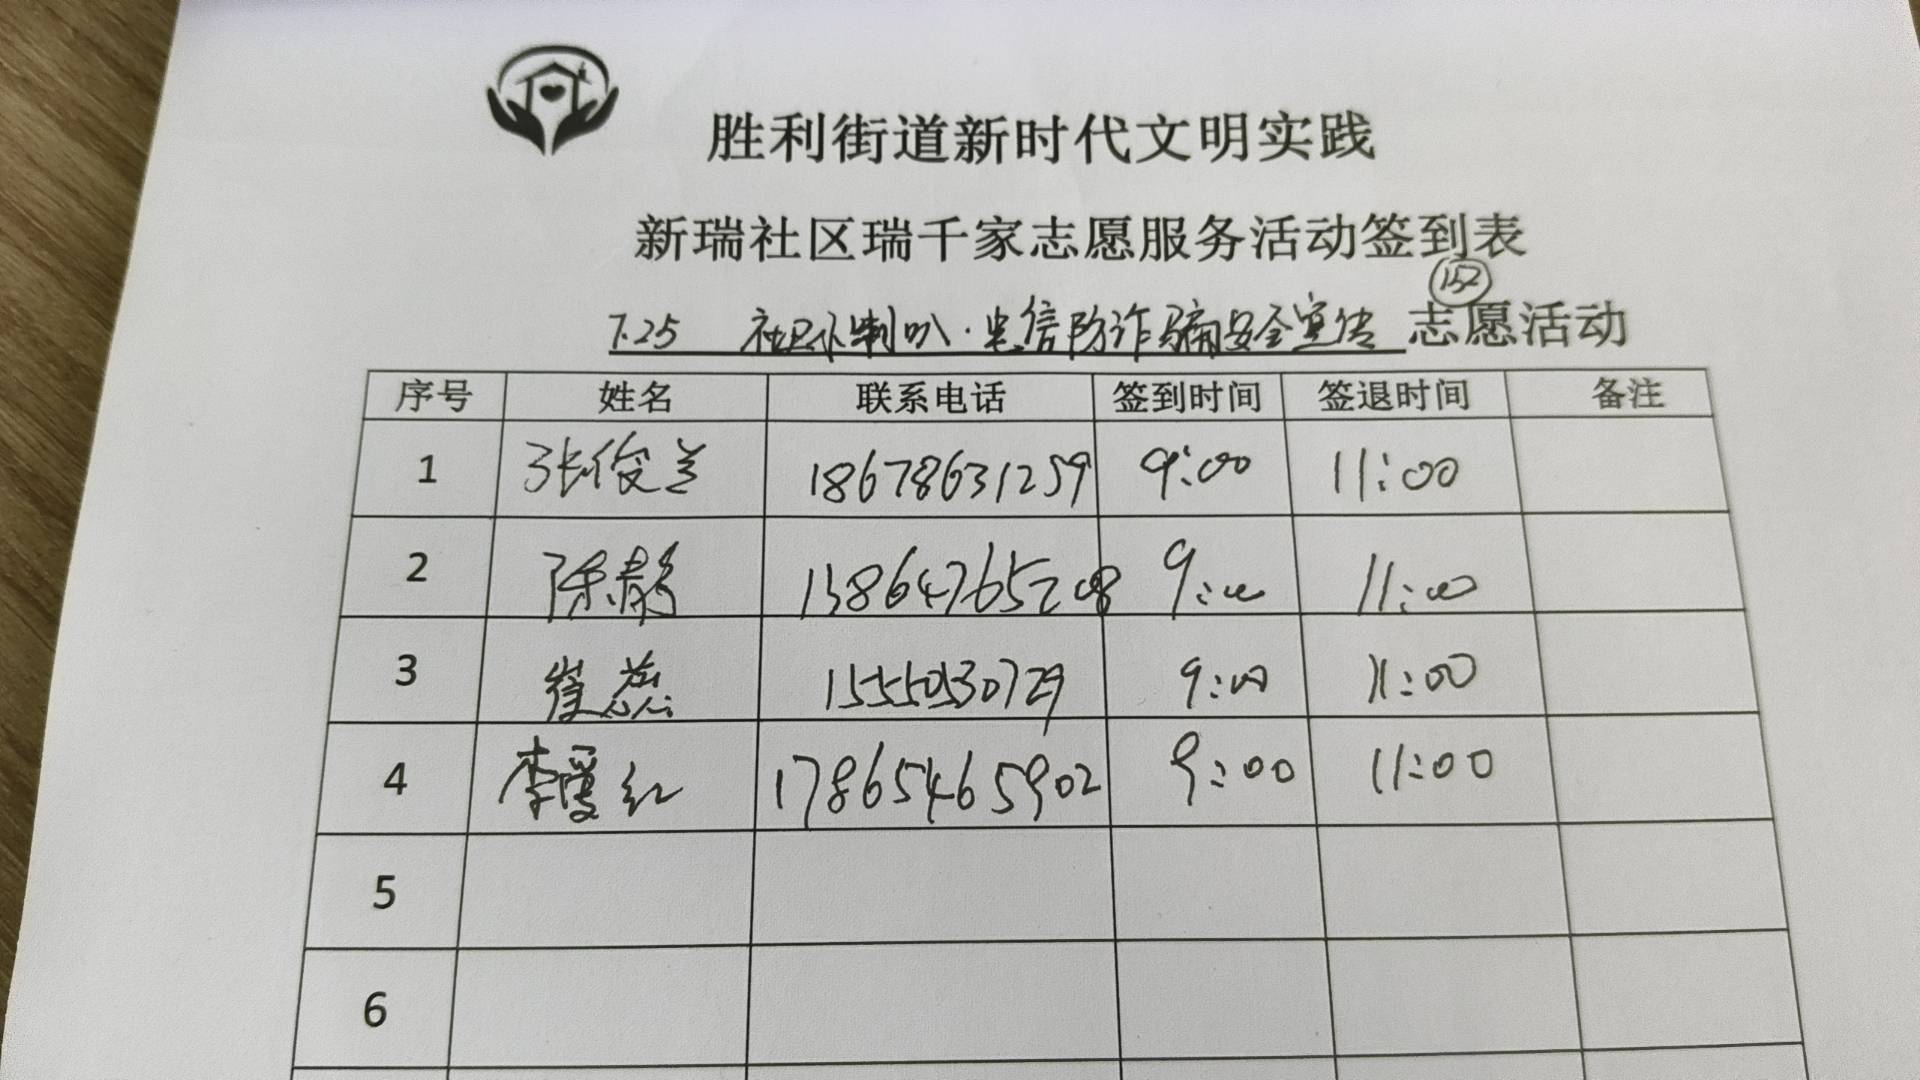 胜利街道新时代文明实践
新瑞社区瑞千家志愿服务活动签到表
152
7.25 社区小喇叭·电信防诈骗安全宣传 志愿活动
序号 姓名 联系电话 签到时间 签退时间 备注
1 张俊兰 18678631259 9:00 11:00
2 陈静 13864765208 9:00 11:00
3 崔蕊 15550530729 9:00 11:00
4 李爱红 17865465902 9:00 11:00
5
6